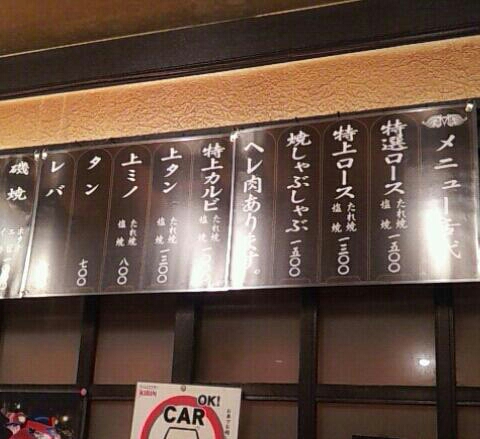 メニュー
特選ロース たれ焼 塩焼 一五〇〇
特上ロース たれ焼 塩焼 一三〇〇
焼しゃぶしゃぶ 一五〇〇
ヘレ肉あります。
特上カルビ たれ焼 塩焼
上タン たれ焼 塩焼 一三〇〇
上ミノ たれ焼 塩焼 八〇〇
タン 七〇〇
レバ
磯焼
KIRIN
OK!
CAR